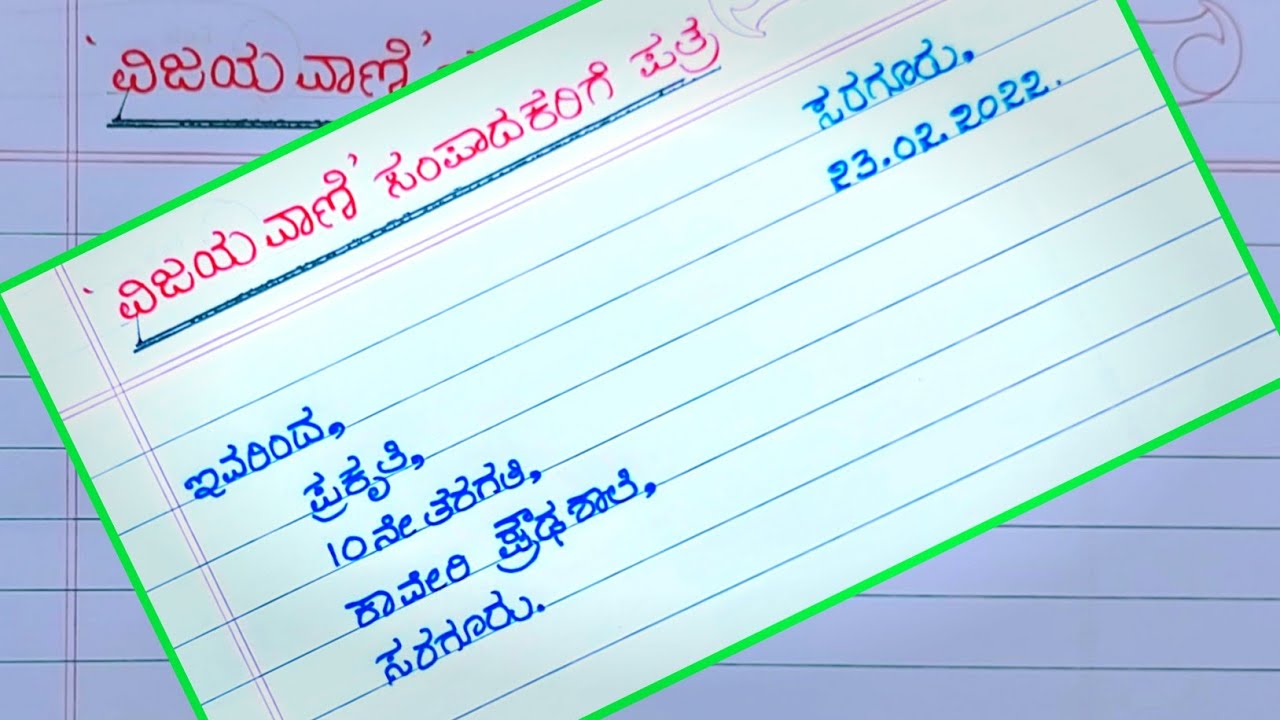 'ವಿಜಯವಾಣಿ'
'ವಿಜಯವಾಣಿ' ಸಂಪಾದಕರಿಗೆ ಪತ್ರ
ಸರಗೂರು.
23.02.2022.
ಇವರಿಂದ,
ಪ್ರಕೃತಿ,
10ನೇ ತರಗತಿ,
ಕಾವೇರಿ ಪ್ರೌಢಶಾಲೆ,
ಸರಗೂರು.